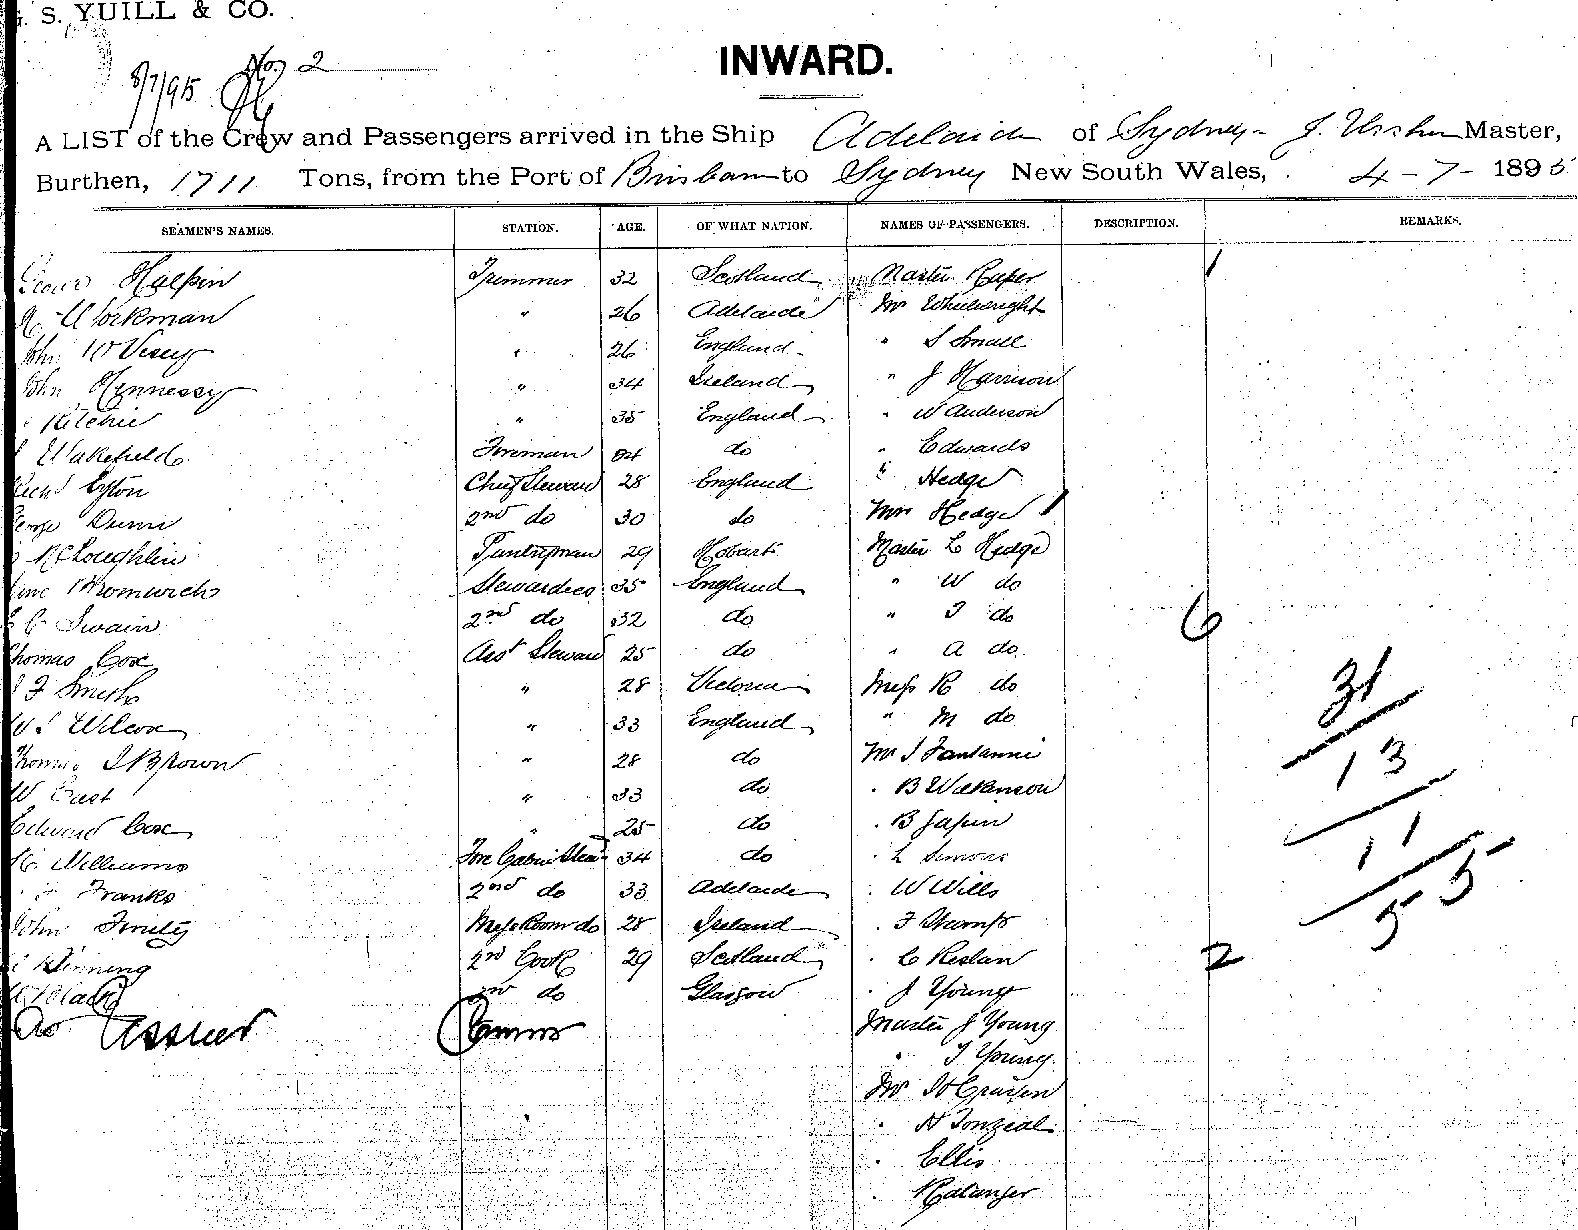 S. YUILL & CO.
No 2
8/7/95
INWARD.
A LIST of the Crew and Passengers arrived in the Ship Adelaide of Sydney J. Ussher Master,
Burthen, 1711 Tons, from the Port of Brisbane to Sydney New South Wales, 4-7-1895
SEAMEN'S NAMES. STATION. AGE. OF WHAT NATION. NAMES OF PASSENGERS. DESCRIPTION. REMARKS.
Halpin Trimmer 32 Scotland Master Raper
Workman " 26 Adelaide Mr Wheelwright
John " 26 England " S Small
John Hennessy " 34 Ireland " J Harrison
Ritchie " 35 England " W Anderson
Wakefield Fireman 24 do " Edwards
Eyton Chief Steward 28 England " Hedge
George Dunn 2nd do 30 do Mrs Hedge
McLoughlin Pantryman 29 Hobart Master C Hedge
Bromwich Stewardess 35 England " W do
Swain 2nd do 32 do " do
6
Thomas Cox Asst Steward 25 do " A do
F Smith " 28 Victoria Miss R do
Wilcox " 33 England " M do
31
Thomas Brown " 28 do Mr
13
W East " 33 do " B Wilkinson
Edward Cox " 25 do " B
Williams Fore Cabin Stew 34 do " L Simons
11
Franks 2nd do 33 Adelaide " W Wills
55
John Mess Room do 28 Ireland " F
2nd Cook 29 Scotland "
2
Black do Glasgow " J Young
Ussher Master J Young
Young
Mr
"
" Ellis
"